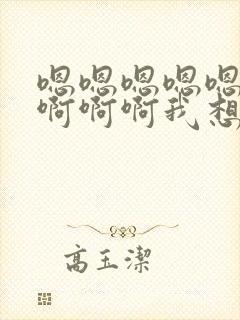 嗯嗯嗯嗯嗯
啊啊啊我想
高玉潔